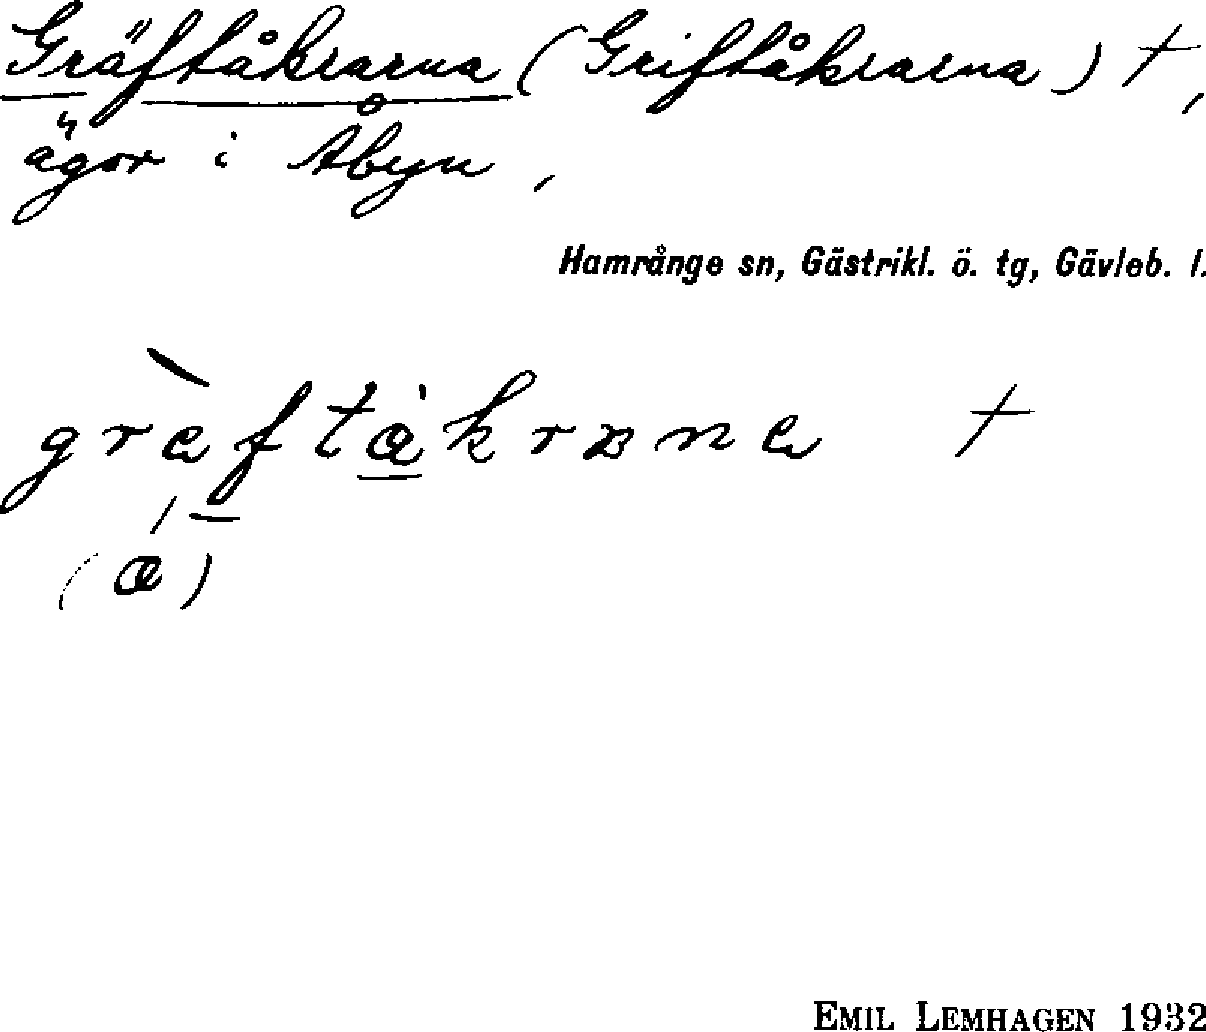 Gräftåkrarna (Griftåkrarna) †,
ägor i Åbyn,
Hamrånge sn, Gästrikl. ö. tg, Gävleb. l.
græ̀ftåkrɷna †
(æ)
EMIL LEMHAGEN 1932